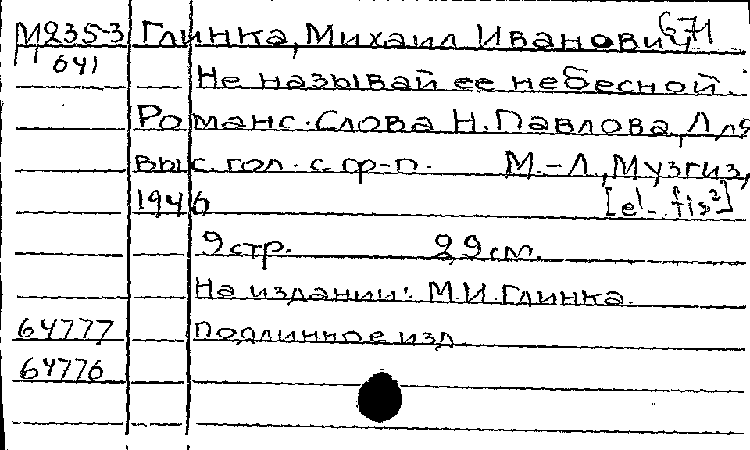 М235-3 Глинка, Михаил Иванович
641
Не называй ее небесной.
Романс. Слова Н. Павлова, Для
выс. гол. с ф-п. М.-Л, Музгиз,
1946 [e¹- fis²]
9 стр. 29 см.
На издании: М.И. Глинка.
64777 Подлинное изд.
64776